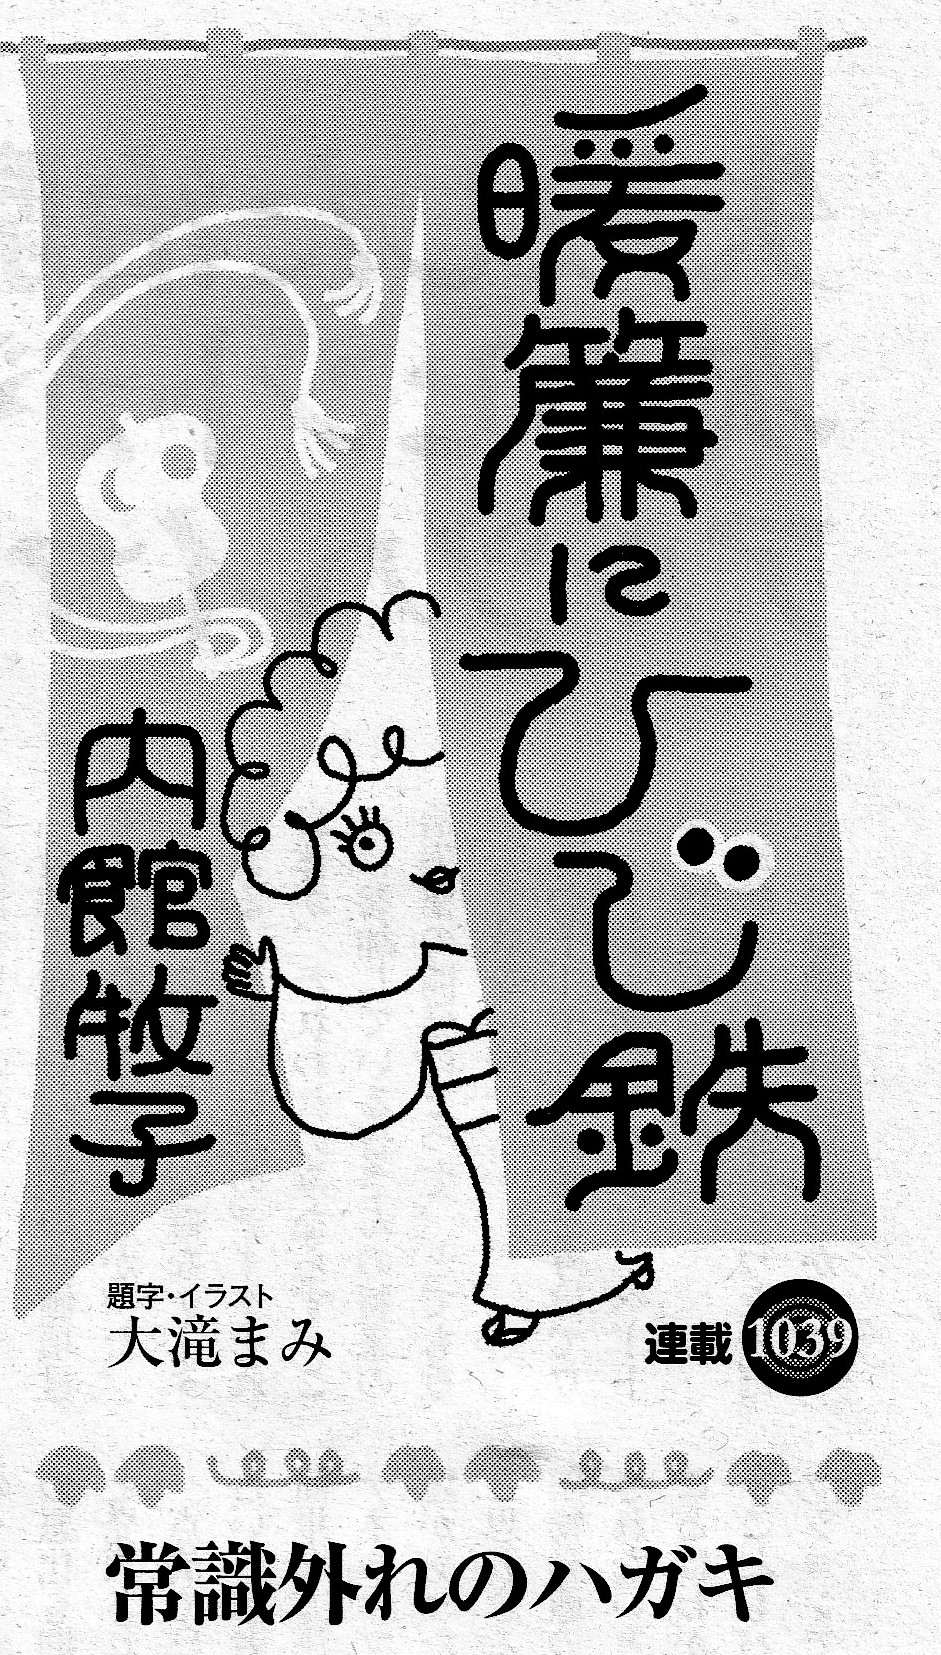 暖簾にひじ鉄
内館牧子
題字・イラスト
大滝まみ
連載1039
常識外れのハガキ